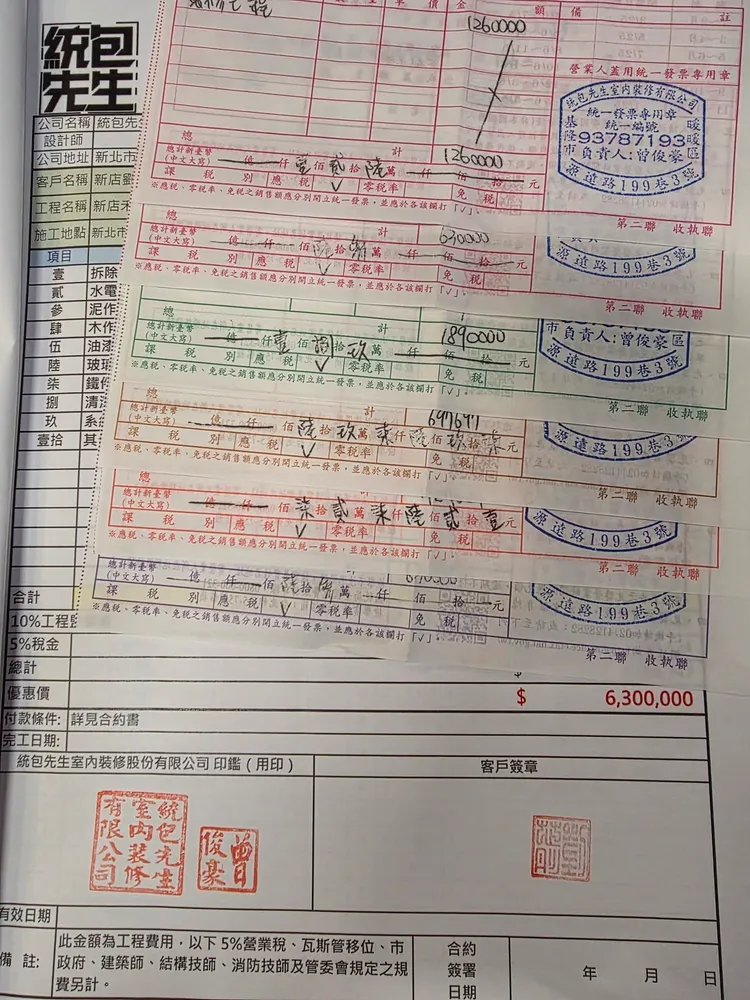 統包
先生
公司名稱 統包先
設計師
公司地址 新北市
客戶名稱 新店劉
工程名稱 新店
施工地點 新北市
項目
壹 拆除
貳 水電
參 泥作
肆 木作
伍 油漆
陸 玻璃
柒 鐵件
捌 清潔
玖 系統
壹拾 其
合計
10%工程
5%稅金
總計
優惠價 $ 6,300,000
付款條件: 詳見合約書
完工日期:
額 備 註
1260000
營業人蓋用統一發票專用章
統包先生室內裝修有限公司
統一發票專用章
統一編號
93787193
負責人:曾俊豪
基隆市 暖暖區
源遠路199巷3號
總 計 1260000
總計新臺幣
(中文大寫) 億 仟 壹 佰 貳 拾 陸 萬 仟 佰 拾 元
課 稅 別 應 稅 V 零稅率 免 稅
※應稅、零稅率、免稅之銷售額應分別開立統一發票，並應於各該欄打「V」。
第二聯 收執聯
總 計 630000
總計新臺幣
(中文大寫) 億 仟 佰 陸 拾 參 萬 仟 佰 拾 元
課 稅 別 應 稅 V 零稅率 免 稅
※應稅、零稅率、免稅之銷售額應分別開立統一發票，並應於各該欄打「V」。
源遠路199巷3號
第二聯 收執聯
總 計 1890000
總計新臺幣
(中文大寫) 億 仟 壹 佰 捌 拾 玖 萬 仟 佰 拾 元
課 稅 別 應 稅 V 零稅率 免 稅
※應稅、零稅率、免稅之銷售額應分別開立統一發票，並應於各該欄打「V」。
市負責人:曾俊豪區
源遠路199巷3號
第二聯 收執聯
總 計 697697
總計新臺幣
(中文大寫) 億 仟 佰 陸 拾 玖 萬 柒 仟 陸 佰 玖 拾 柒 元
課 稅 別 應 稅 V 零稅率 免 稅
※應稅、零稅率、免稅之銷售額應分別開立統一發票，並應於各該欄打「V」。
源遠路199巷3號
第二聯 收執聯
總 計
總計新臺幣
(中文大寫) 億 仟 佰 柒 拾 貳 萬 柒 仟 陸 佰 貳 拾 壹 元
課 稅 別 應 稅 V 零稅率 免 稅
※應稅、零稅率、免稅之銷售額應分別開立統一發票，並應於各該欄打「V」。
源遠路199巷3號
第二聯 收執聯
總計新臺幣
(中文大寫) 億 仟 佰 陸 拾 參 萬 仟 佰 拾 元
課 稅 別 應 稅 V 零稅率 免 稅
※應稅、零稅率、免稅之銷售額應分別開立統一發票，並應於各該欄打「V」。
源遠路199巷3號
第二聯 收執聯
統包先生室內裝修股份有限公司 印鑑（用印） 客戶簽章
統包先生室內裝修有限公司
曾俊豪
有效日期
備 註: 此金額為工程費用，以下 5%營業稅、瓦斯管移位、市
政府、建築師、結構技師、消防技師及管委會規定之規
費另計。
合約
簽署
日期
年 月 日